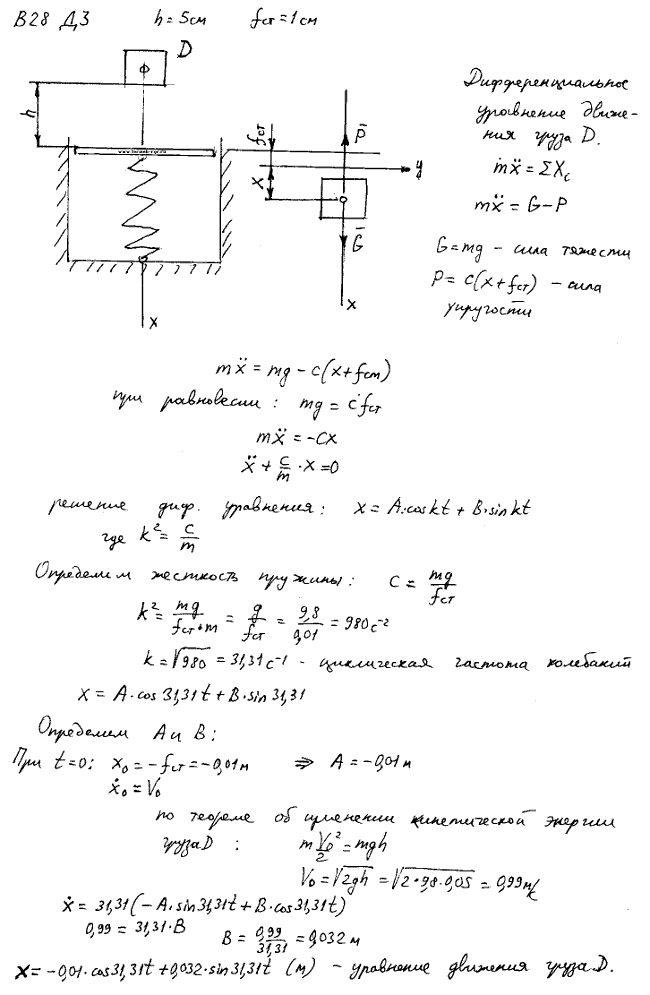 В28 Д3 h = 5см fст = 1см
D
h
fст
x
P̄
y
Ḡ
x
x
Дифференциальное
уравнение движе-
ния груза D.
mẍ = ΣXc
mẍ = G-P
G = mg - сила тяжести
P = c(x + fст) - сила
упругости
mẍ = mg - c(x + fст)
при равновесии: mg = c·fст
mẍ = -cx
ẍ + c/m · x = 0
решение диф. уравнения: x = A·cos kt + B·sin kt
где k² = c/m
Определим жесткость пружины: c = mg/fст
k² = mg/(fст·m) = g/fст = 9,8/0,01 = 980 с⁻²
k = √980 = 31,31 с⁻¹ - циклическая частота колебаний
x = A·cos 31,31t + B·sin 31,31
Определим A и B:
При t=0: x₀ = -fст = -0,01м ⇒ A = -0,01м
ẋ₀ = V₀
по теореме об изменении кинетической энергии
груза D: mV₀²/2 = mgh
V₀ = √2gh = √2·9,8·0,05 = 0,99м/с
ẋ = 31,31(-A·sin 31,31t + B·cos 31,31t)
0,99 = 31,31·B B = 0,99/31,31 = 0,032 м
x = -0,01·cos 31,31t + 0,032·sin 31,31t (м) - уравнение движения груза D.